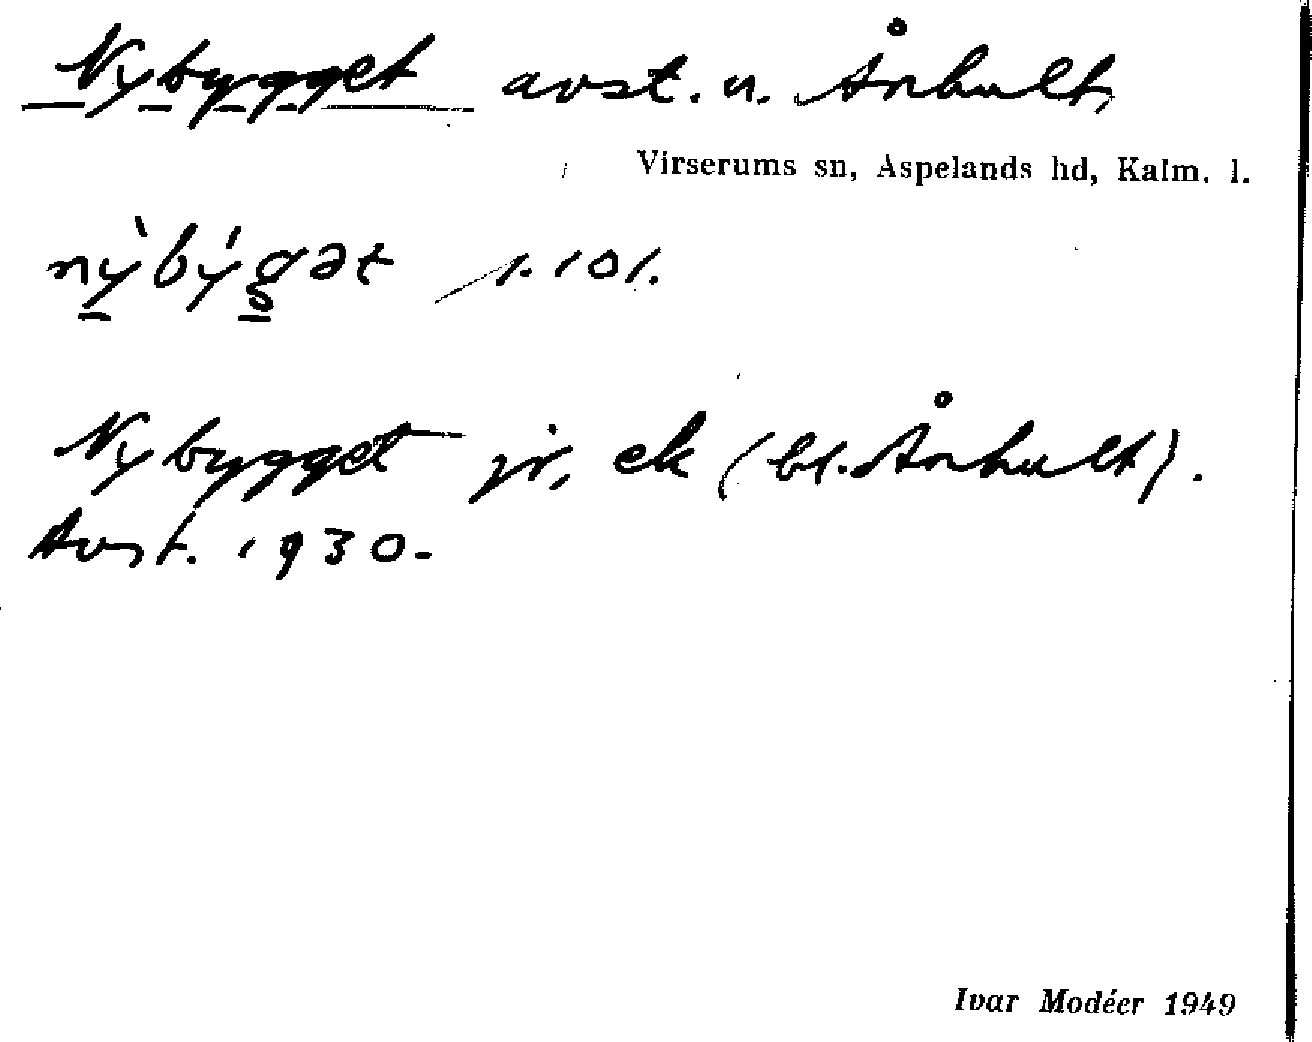 Nybygget avst. u. Ånhult
Virserums sn, Aspelands hd, Kalm. l.
nỳbýgət /1.101.
Nybygget jr, ek (bl. Ånhult).
Avst. 1930.
Ivar Modéer 1949